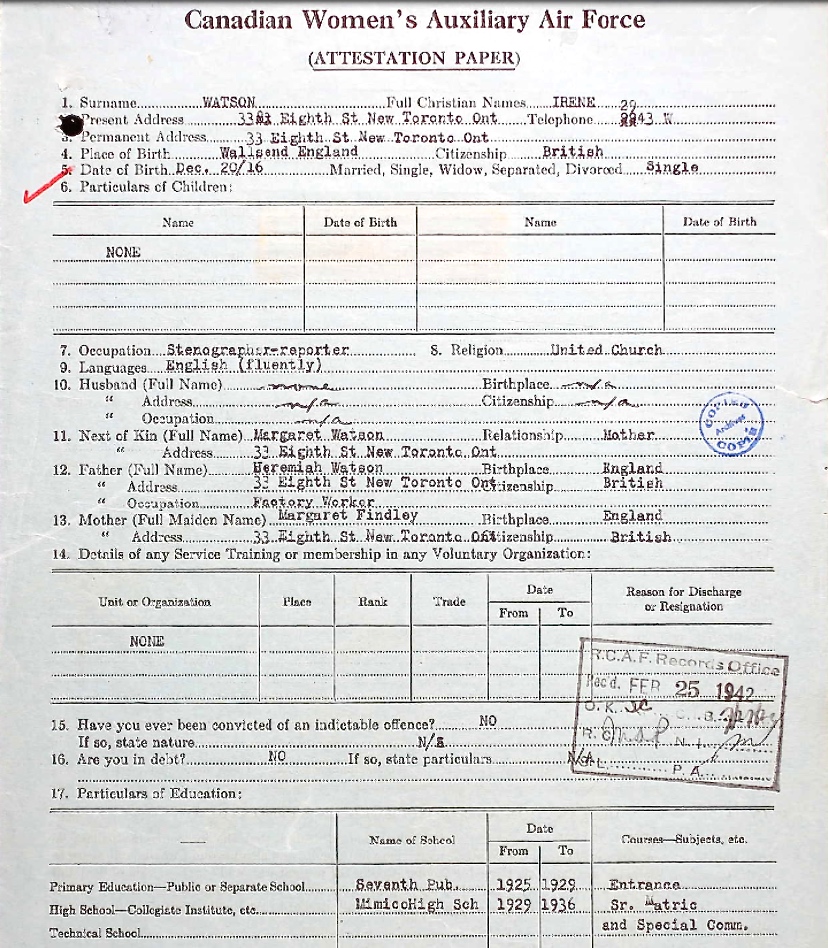 Canadian Women's Auxiliary Air Force
(ATTESTATION PAPER)
1. Surname WATSON Full Christian Names IRENE
Present Address 33 Eighth St New Toronto Ont Telephone 43 W
3. Permanent Address. 33 Eighth St New Toronto Ont
4. Place of Birth Wallsend England Citizenship British
5. Date of Birth Dec. 20/16 Married, Single, Widow, Separated, Divorced Single
6. Particulars of Children:
Name Date of Birth Name Date of Birth
NONE
7. Occupation Stenographer-reporter 8. Religion United Church
9. Languages English (fluently)
10. Husband (Full Name) none Birthplace n/a
" Address n/a Citizenship n/a
" Occupation n/a
COPIED
Archives
COPIE
11. Next of Kin (Full Name) Margaret Watson Relationship Mother
" Address 33 Eighth St New Toronto Ont
12. Father (Full Name) Jeremiah Watson Birthplace England
" Address 33 Eighth St New Toronto Ont Citizenship British
" Occupation Factory Worker
13. Mother (Full Maiden Name) Margaret Findley Birthplace England
" Address 33 Eighth St New Toronto Ont Citizenship British
14. Details of any Service Training or membership in any Voluntary Organization:
Unit or Organization Place Rank Trade Date From To Reason for Discharge or Resignation
NONE
R.C.A.F. Records Office
Rec'd. FEB 25 1942
O.K. JC
P.A.
15. Have you ever been convicted of an indictable offence? NO
If so, state nature N/a
16. Are you in debt? NO If so, state particulars N/A
17. Particulars of Education:
Name of School Date From To Courses—Subjects, etc.
Primary Education—Public or Separate School Seventh Pub. 1925 1929 Entrance
High School—Collegiate Institute, etc. MimicoHigh Sch 1929 1936 Sr. Matric
Technical School and Special Comm.